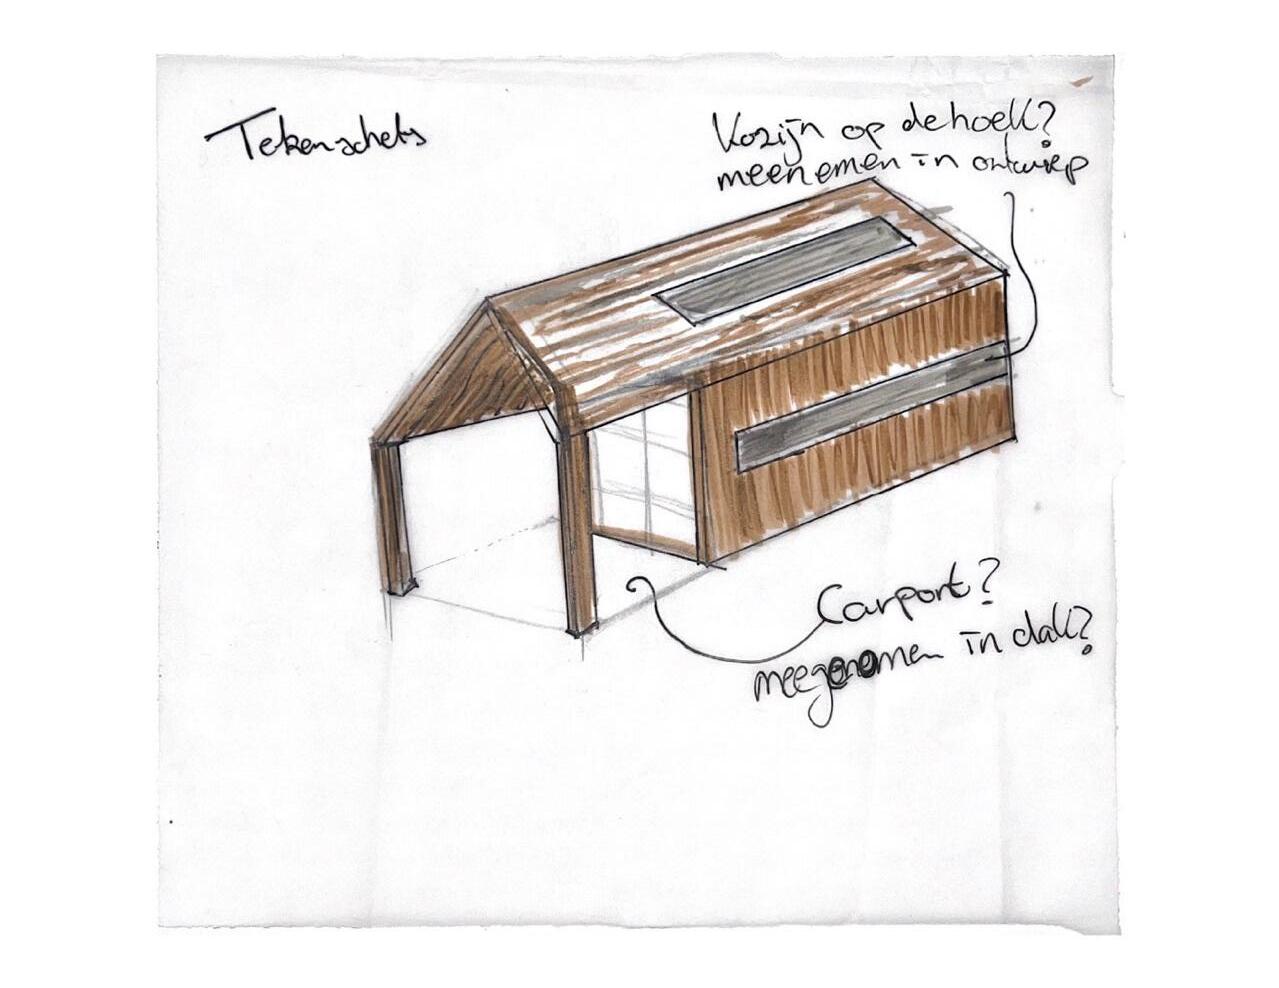 Tekenschets
Kozijn op de hoek?
meenemen in ontwerp
Carport?
meegenomen in dak?